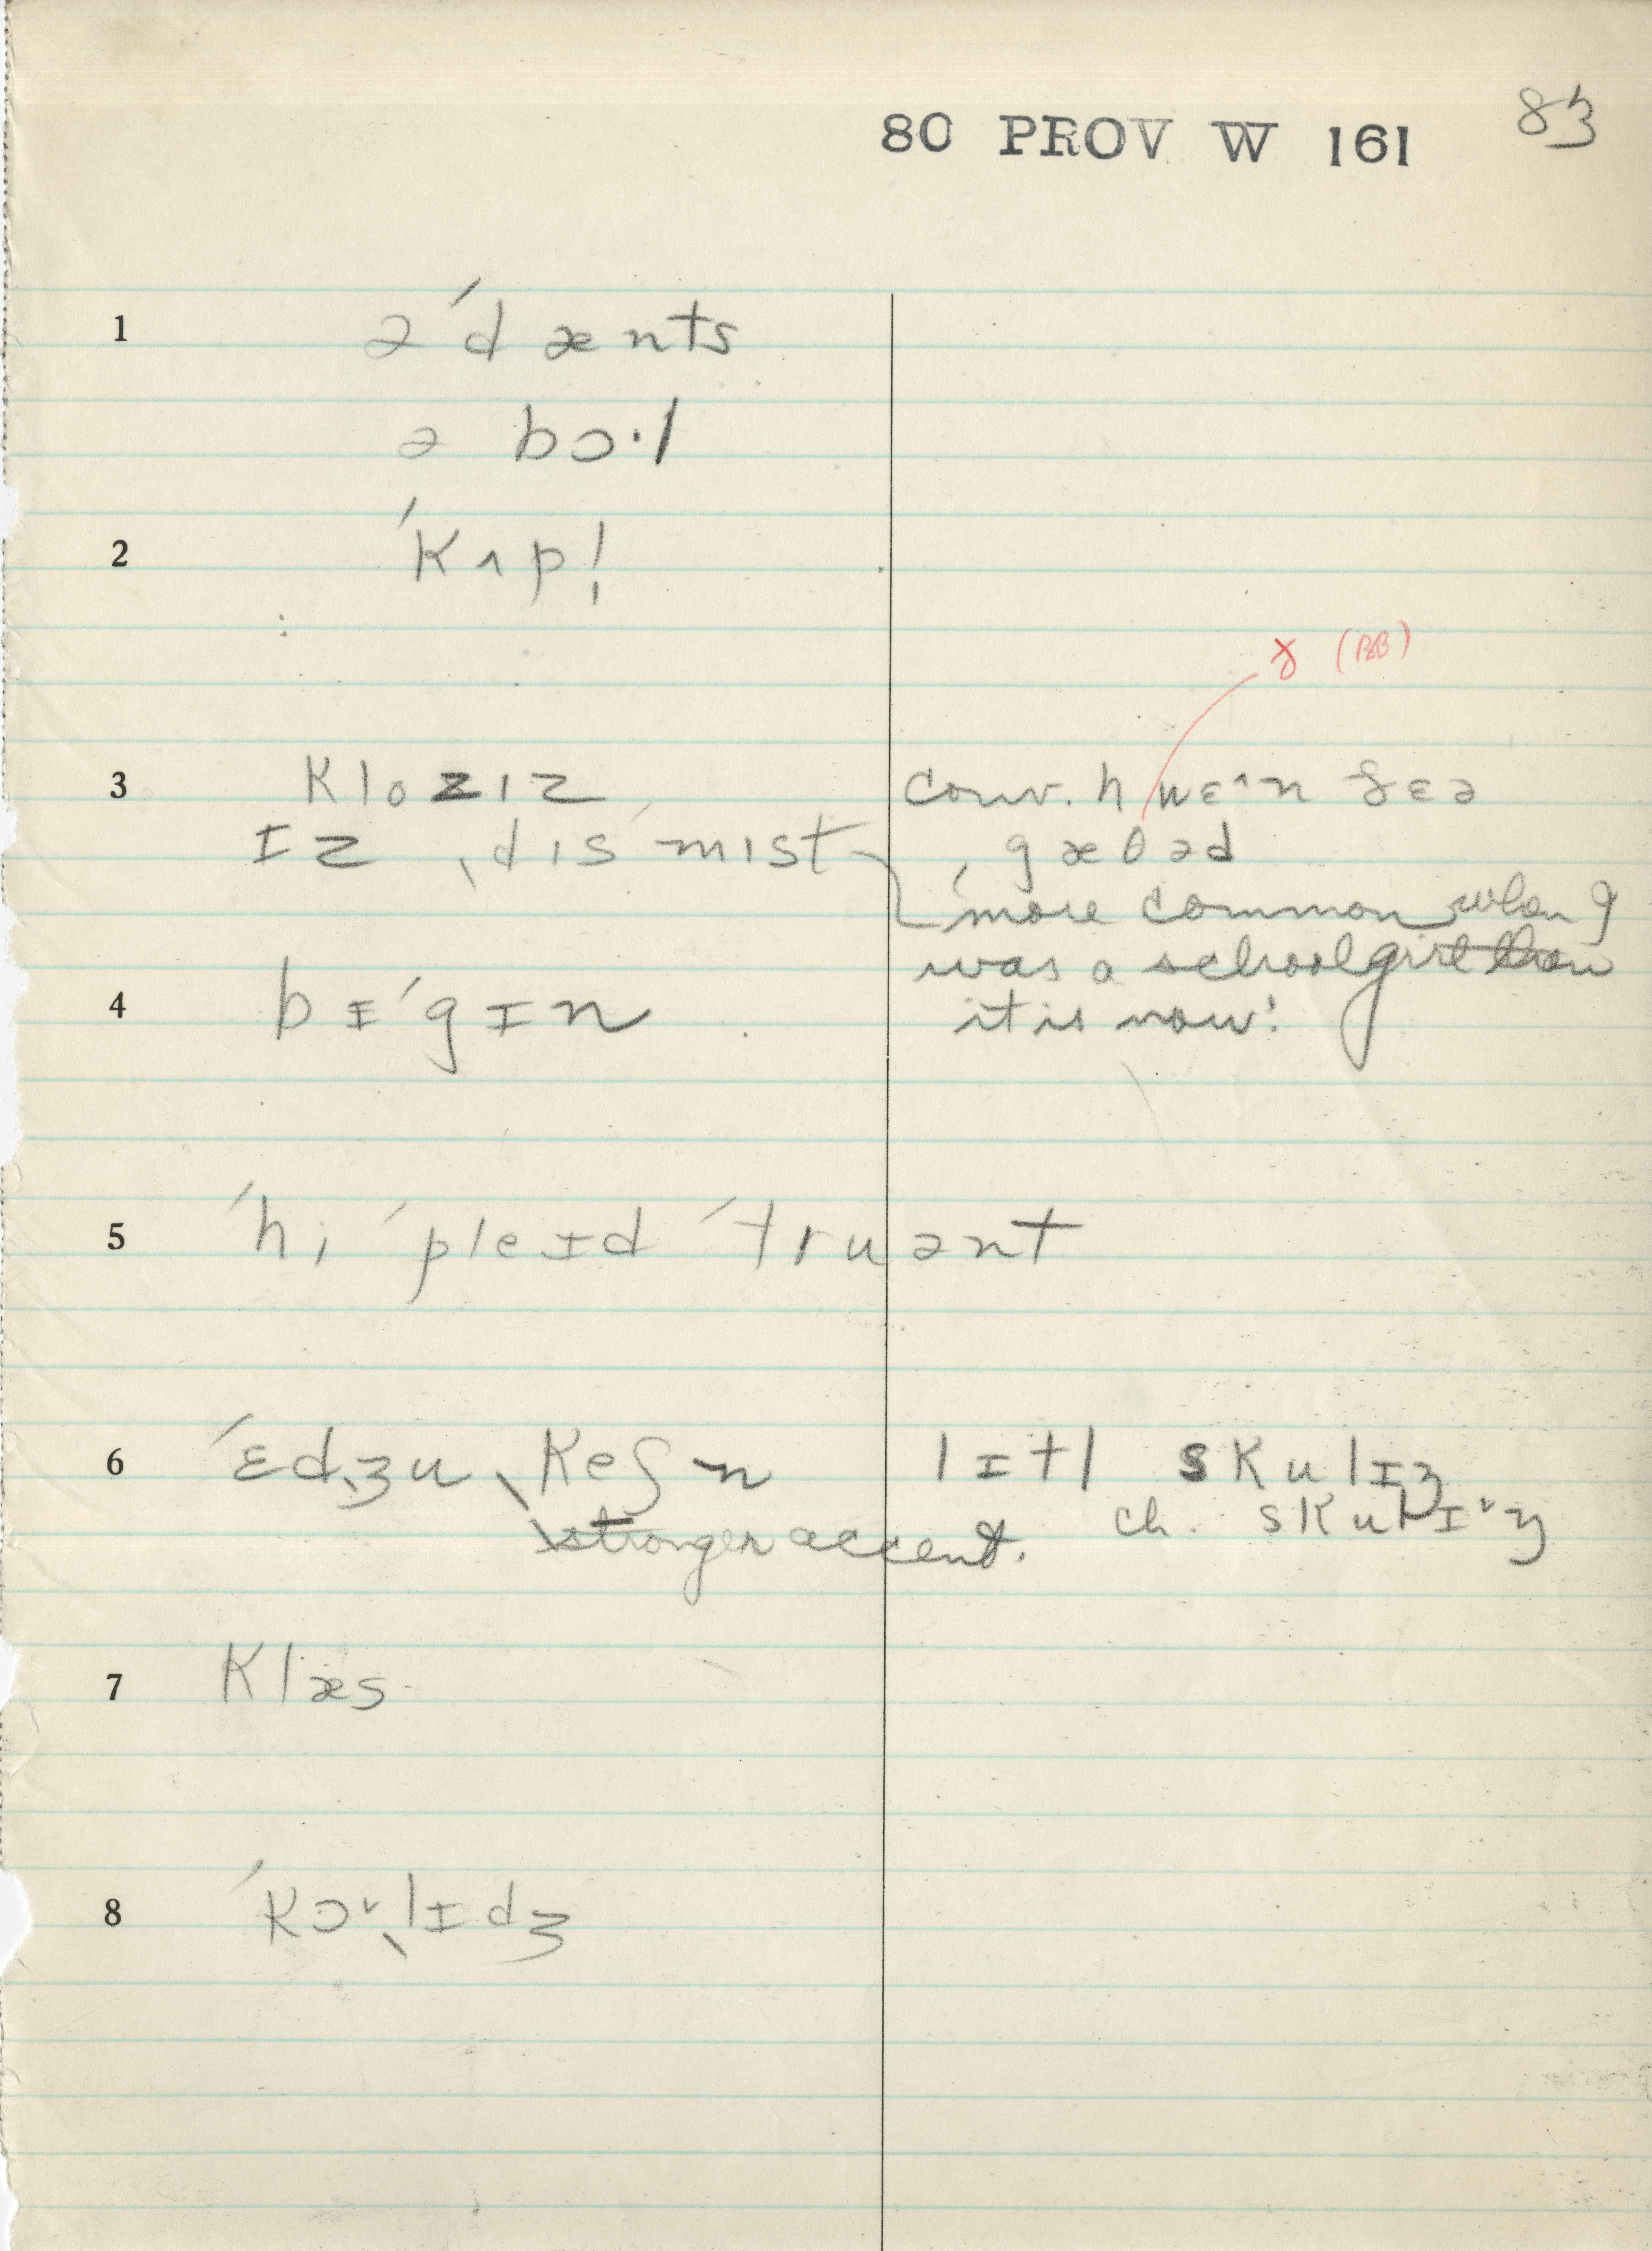 80 PROV W 161
83
1 ə ˈd æ nts
ə bɔ·l
2 ˈKʌpl̩
ɤ (BB)
3 Klozɪz
ɪz ˌdɪsˈmɪst
conv. hwɛ^n ðɛə
gæðəd
'more common when I
was a schoolgirl than
it is now'.
4 bɪˈgɪn
5 ˈhi ˈpleɪd ˈtruənt
6 ˈɛdʒuˌKeʃn
stronger accent.
lɪtl sKulɪz
ch. sKulɪ˅z
7 Klæs
8 ˈKɔ˅ˌlɪdʒ